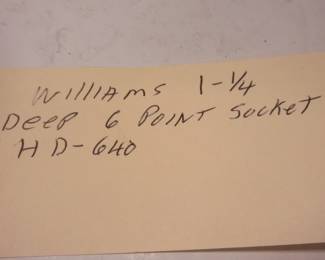 Williams 1-1/4
Deep 6 Point Socket
HD-640